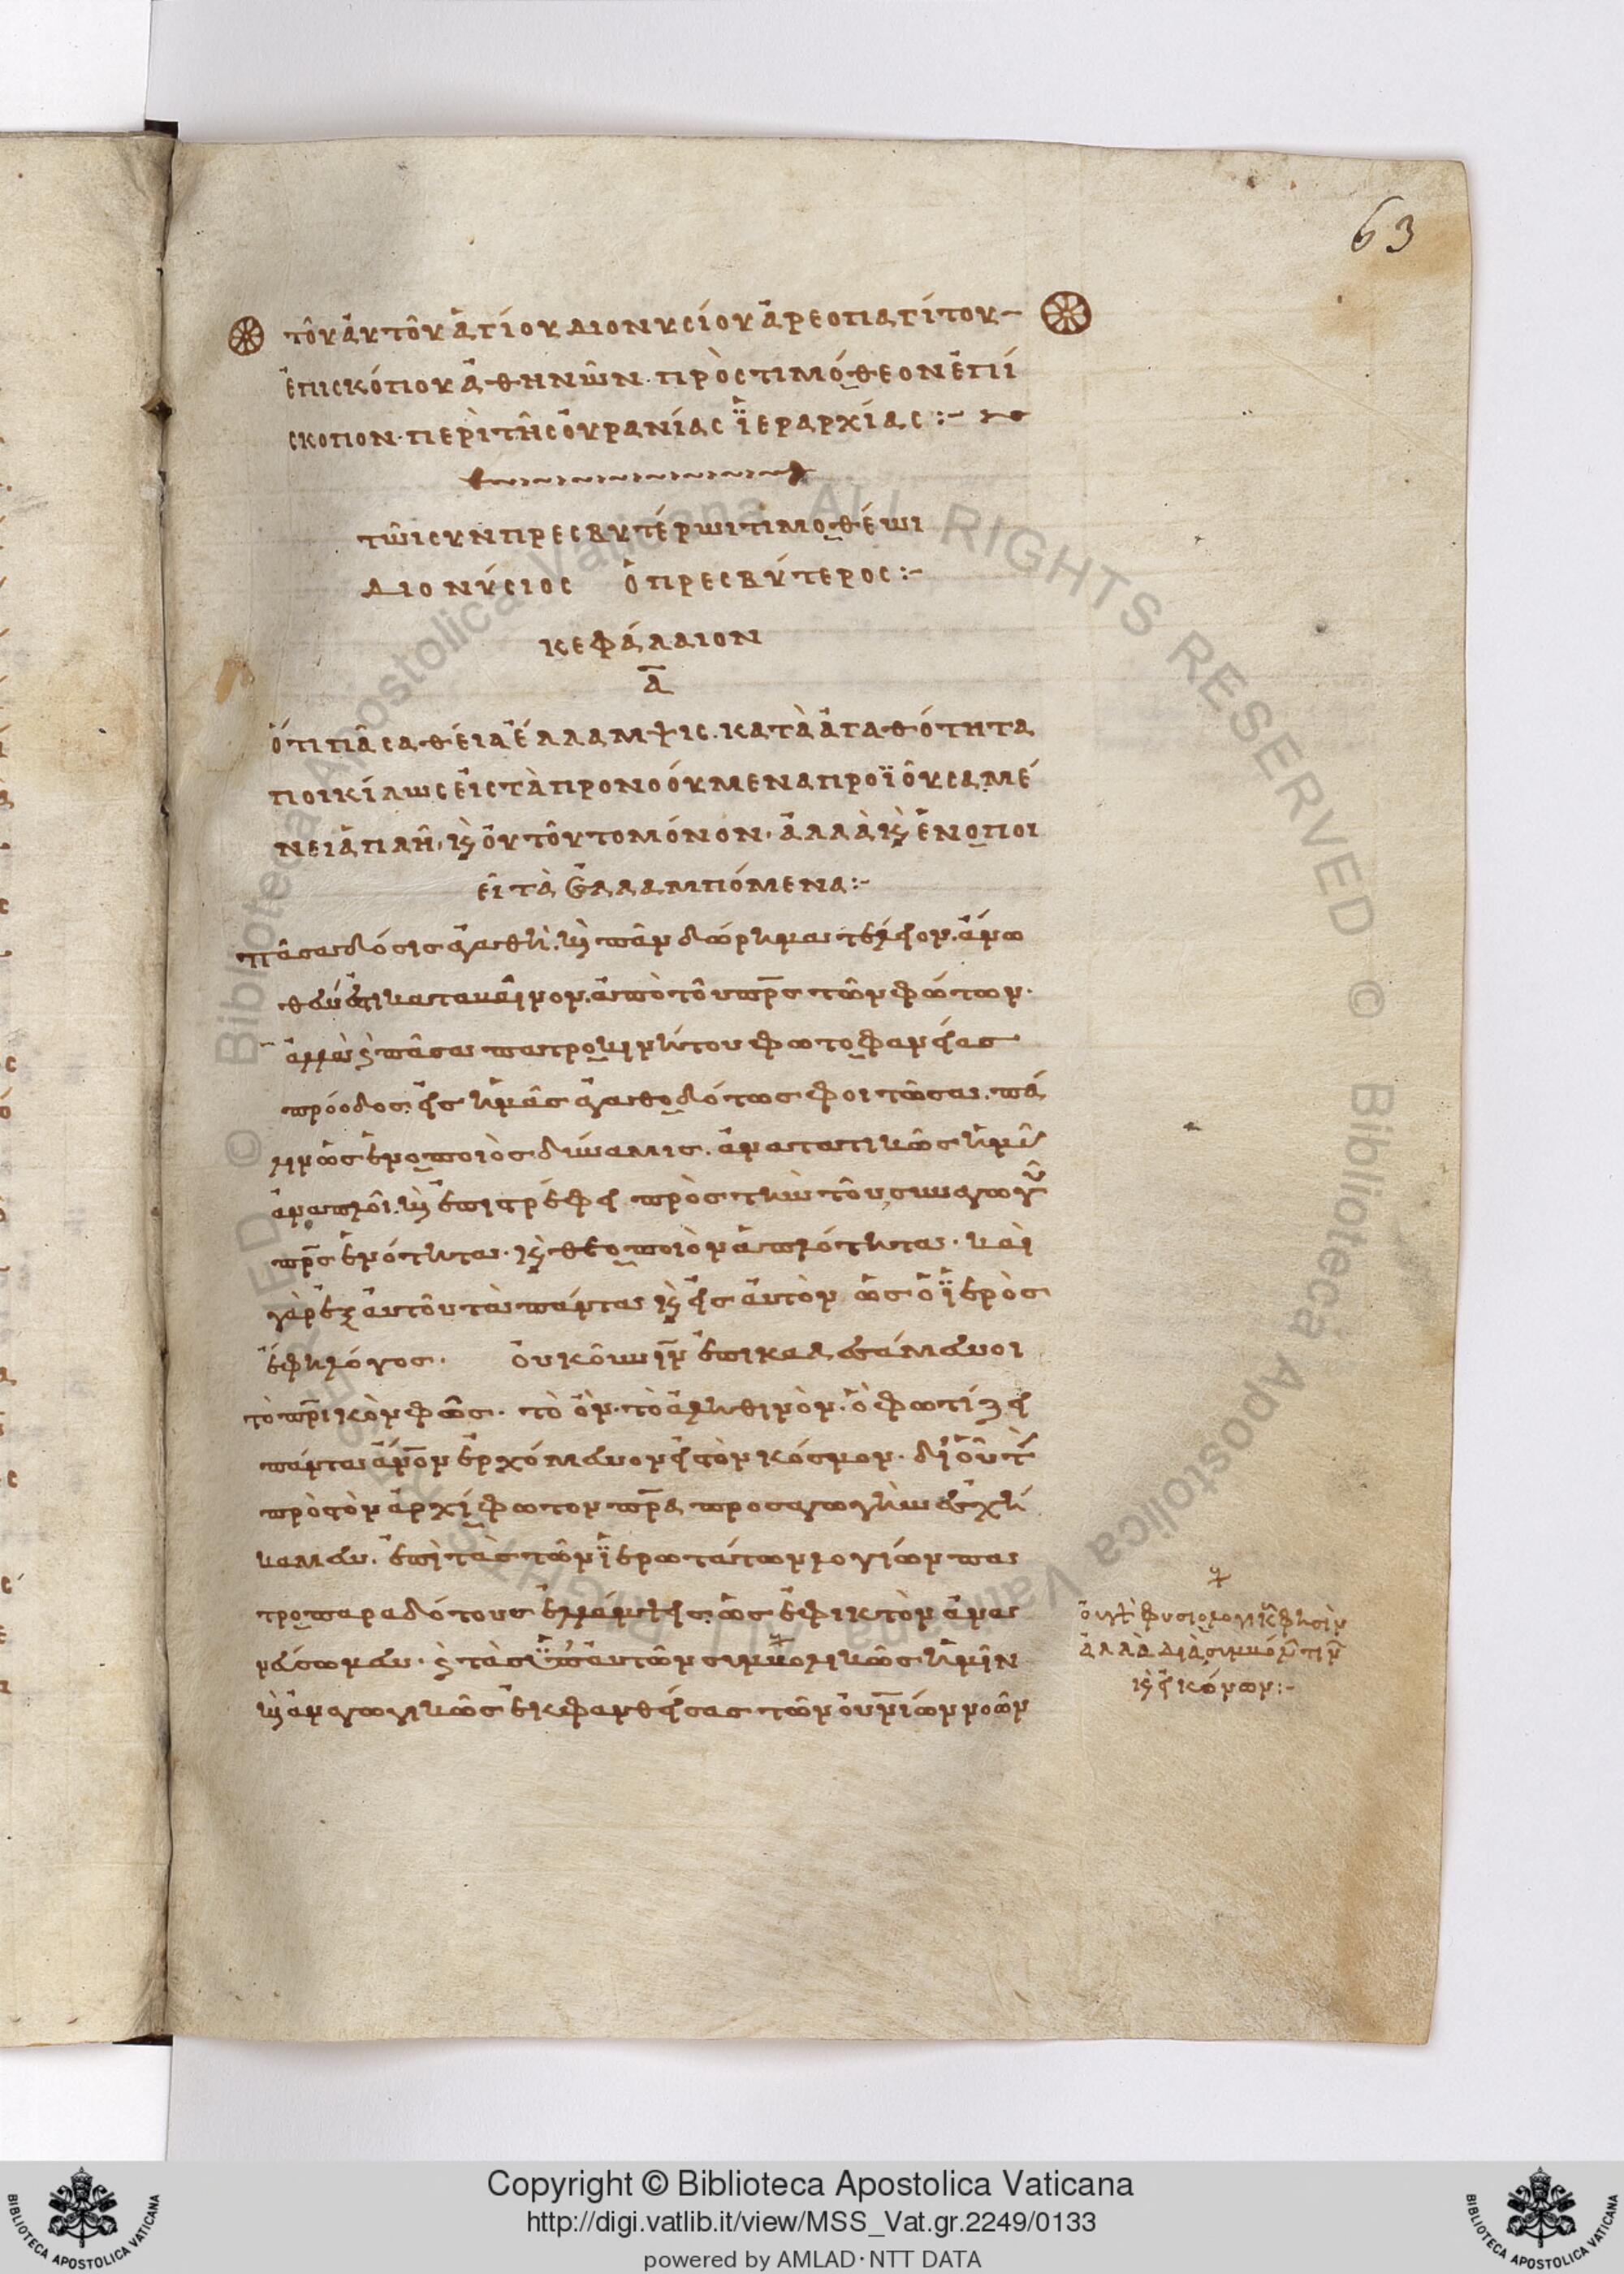 63
τοῦ αὐτοῦ ἁγίου διονυσίου ἀρεοπαγίτου –
ἐπισκόπου ἀθηνῶν · πρὸς τιμόθεον ἐπί
σκοπον · περὶ τῆς οὐρανίας ἱεραρχίας :–
τῶι συνπρεσβυτέρωι τιμοθέωι
διονύσιος ὁ πρεσβύτερος :–
κεφάλαιον
α̅
ὅτι πᾶσα θεία ἔλλαμψις · κατὰ ἀγαθότητα
ποικίλως εἰς τὰ προνοούμενα προϊοῦσα μέ
νει ἁπλῆ · κ(αὶ) οὐ τοῦτο μόνον · ἀλλὰ κ(αὶ) ἑνοποι
εῖ τὰ ἐλλαμπόμενα :–
πᾶσα δόσις ἀγαθὴ · κ(αὶ) πᾶν δώρημα τέλειον · ἄνω
θέν ἐστι καταβαῖνον · ἀπὸ τοῦ πρ̅ς τῶν φώτων ·
ἀλλὰ κ(αὶ) πᾶσα πατροκινήτου φωτοφανείας
πρόοδος · εἰς ἡμᾶς ἀγαθοδότως φοιτῶσα · πά
λιν ὡς ἑνοποιὸς δύναμις · ἀνατατικῶς ἡμᾶς
ἀναπλοῖ · κ(αὶ) ἐπιστρέφει πρὸς τὴν τοῦ συναγωγοῦ
πρ̅ς ἑνότητα · κ(αὶ) θεοποιὸν ἁπλότητα · καὶ
γὰρ ἐξ αὐτοῦ τὰ πάντα κ(αὶ) εἰς αὐτὸν ὡς ὁ ἱερὸς
ἔφη λόγος · οὐκοῦν ιν̅ ἐπικαλεσάμενοι
τὸ πρ̅ικὸν φῶς · τὸ ὂν · τὸ ἀληθινὸν · ὃ φωτίζει
πάντα ἄν̅ον ἐρχόμενον εἰς τὸν κόσμον · δι οὗ τὴν
πρὸς τὸν ἀρχίφωτον πρ̅α προσαγωγὴν ἐσχή
καμεν · ἐπὶ τὰς τῶν ἱερωτάτων λογίων πα
τροπαραδότους ἐλλάμψεις · ὡς ἐφικτὸν ἀνα
νεύσωμεν · κ(αὶ) τὰς ὑπ αὐτῶν συμβολικῶς ἡμῖν
κ(αὶ) ἀναγωγικῶς ἐκφανθείσας τῶν οὐν̅ίων νοῶν
ἀλλὰ διὰ συμβόλ(ων) τιν(ῶν)
κ(αὶ) εἰκόνων :–
Copyright © Biblioteca Apostolica Vaticana
http://digi.vatlib.it/view/MSS_Vat.gr.2249/0133
powered by AMLAD·NTT DATA
BIBLIOTECA APOSTOLICA VATICANA
BIBLIOTECA APOSTOLICA VATICANA
© Biblioteca Apostolica Vaticana ALL RIGHTS RESERVED © Biblioteca Apostolica Vaticana ALL RIGHTS RESERVED